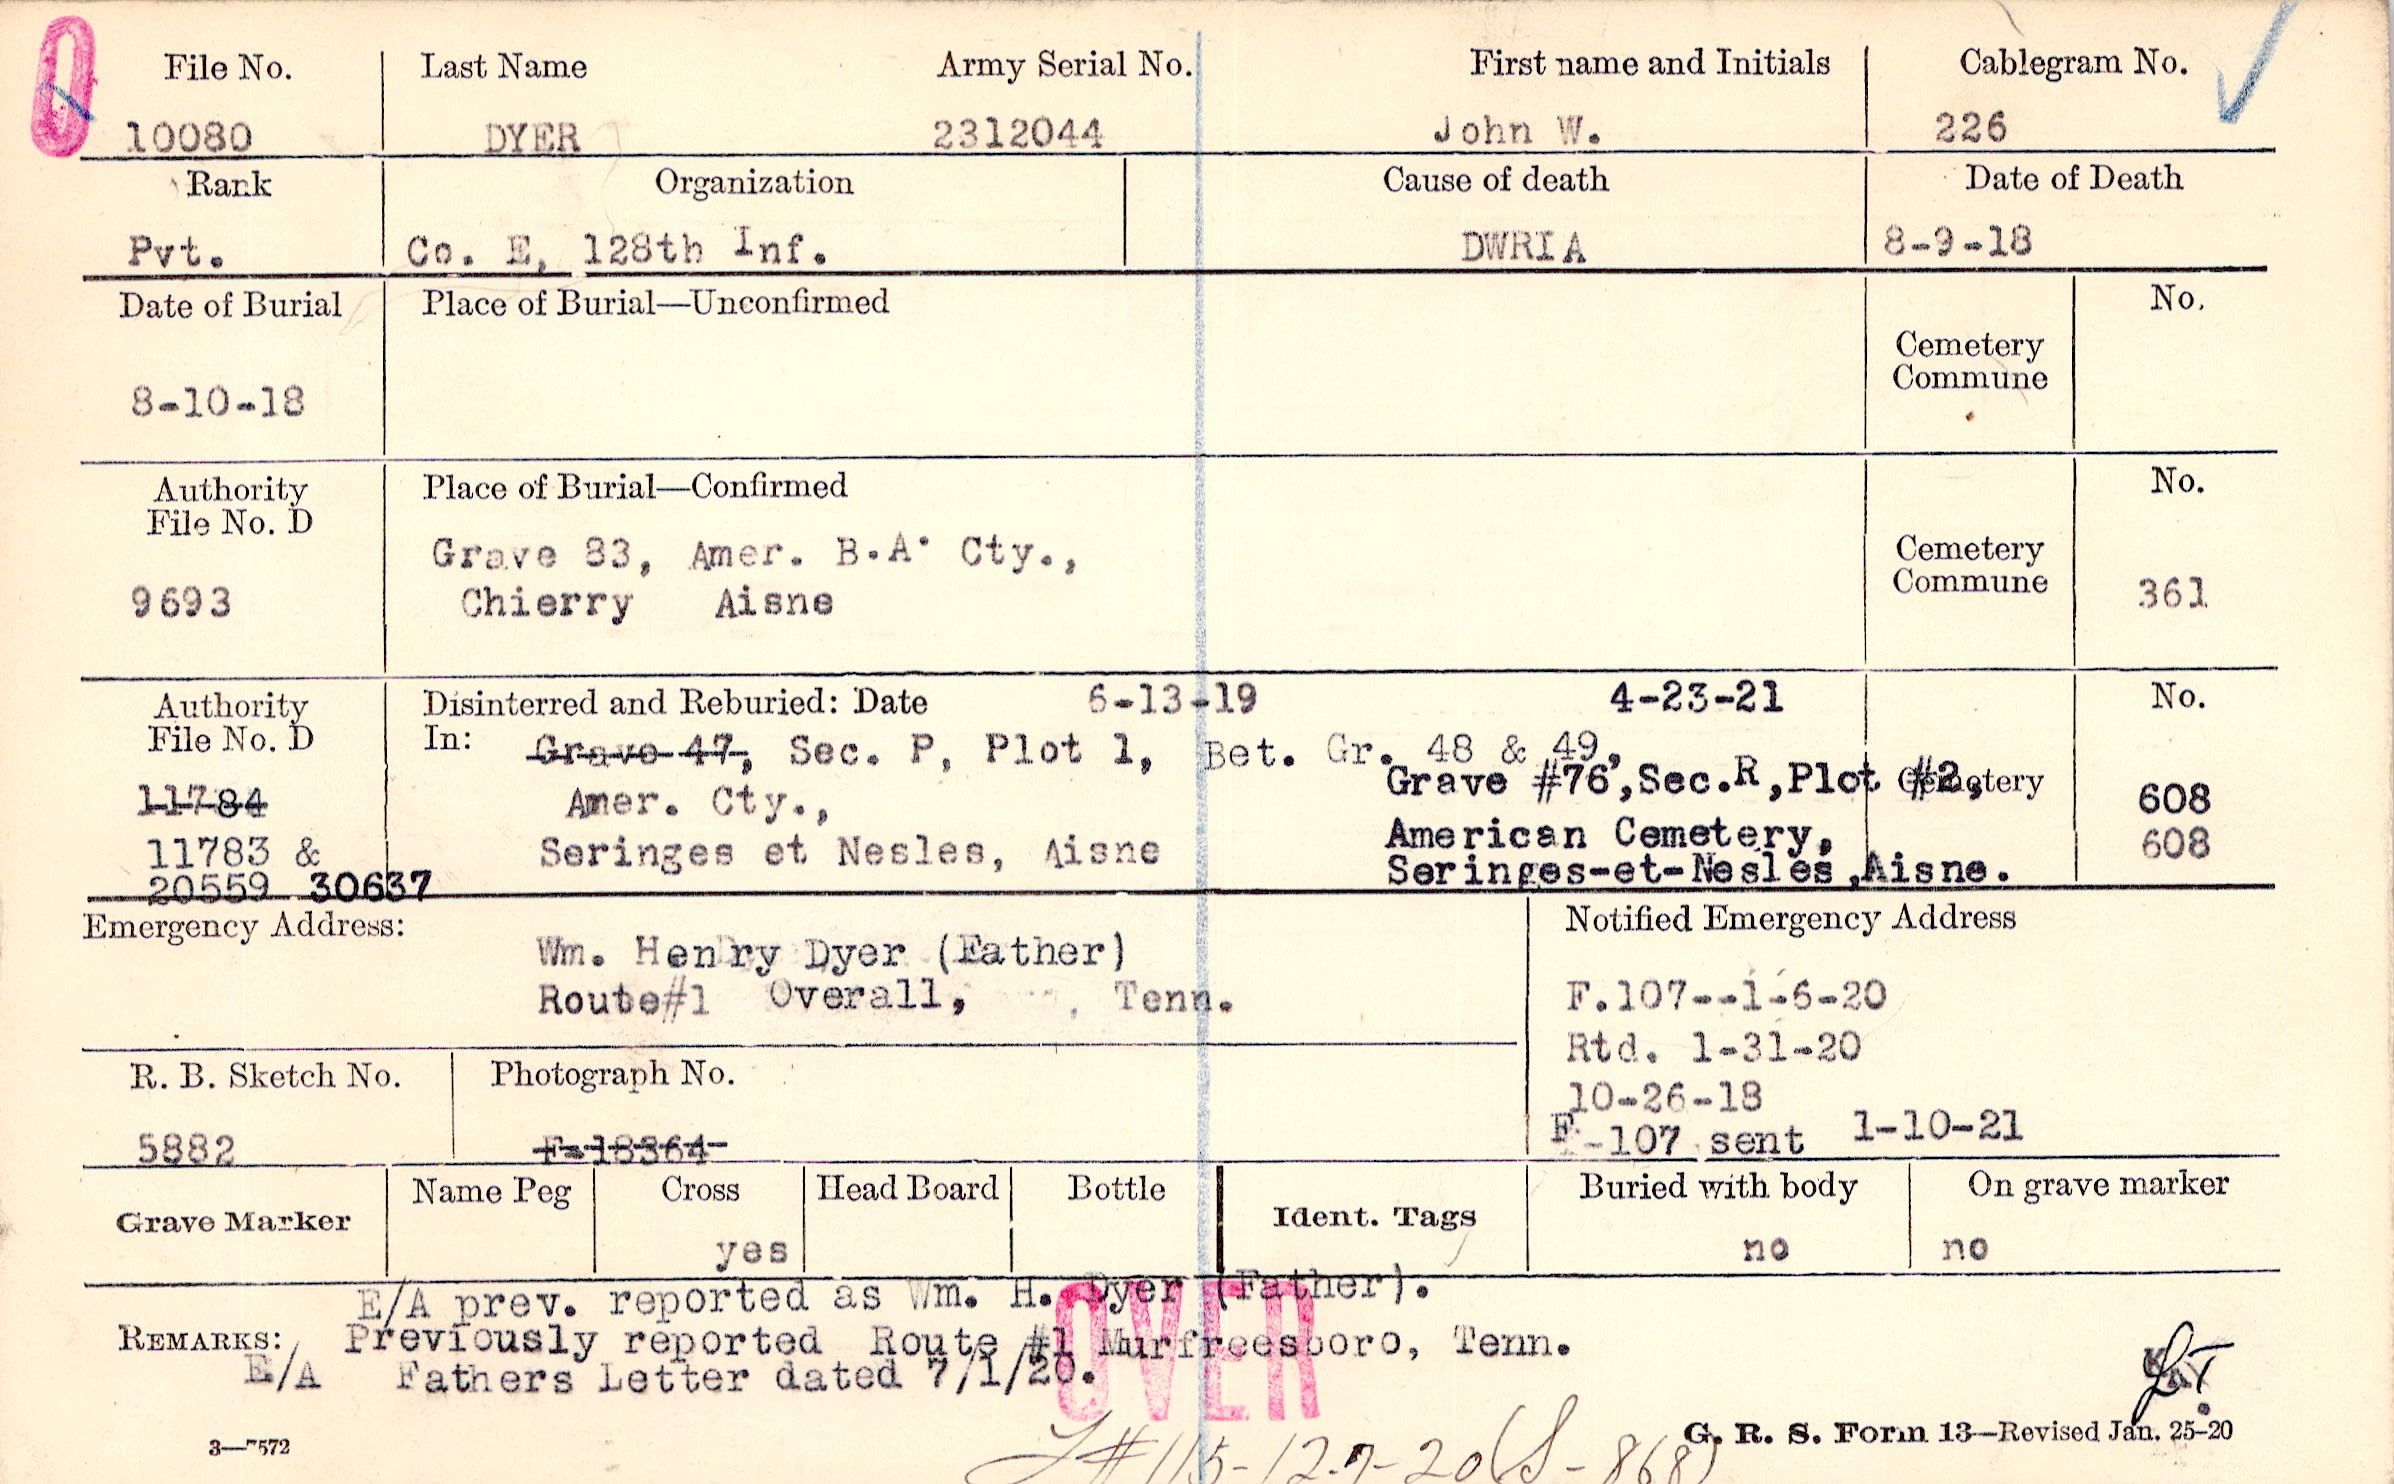 File No. Last Name Army Serial No. First name and Initials Cablegram No.
10080 DYER 2312044 John W. 226
Rank Organization Cause of death Date of Death
Pvt. Co. E, 128th Inf. DWRIA 8-9-18
Date of Burial Place of Burial—Unconfirmed No.
Cemetery
Commune
8-10-18
Authority Place of Burial—Confirmed No.
File No. D
Grave 83, Amer. B.A. Cty., Cemetery
9693 Chierry Aisne Commune 361
Authority Disinterred and Reburied: Date 6-13-19 4-23-21 No.
File No. D In: Grave 47, Sec. P, Plot 1, Bet. Gr. 48 & 49,
Grave #76,Sec.R,Plot #2, Cemetery
11784 Amer. Cty., 608
American Cemetery,
11783 & Seringes et Nesles, Aisne 608
20559 30637 Seringes-et-Nesles,Aisne.
Emergency Address: Notified Emergency Address
Wm. Henry Dyer (Father)
Route#1 Overall, , Tenn. F.107--1-6-20
Rtd. 1-31-20
R. B. Sketch No. Photograph No.
10-26-18
5882 F-18364 F-107 sent 1-10-21
Grave Marker Name Peg Cross Head Board Bottle Ident. Tags Buried with body On grave marker
yes no no
E/A prev. reported as Wm. H. Dyer (Father).
REMARKS: Previously reported Route #1 Murfreesboro, Tenn.
E/A Fathers Letter dated 7/1/20.
OVER
3—7572 G. R. S. Form 13—Revised Jan. 25-20
#115-12-7-20 (S-868)